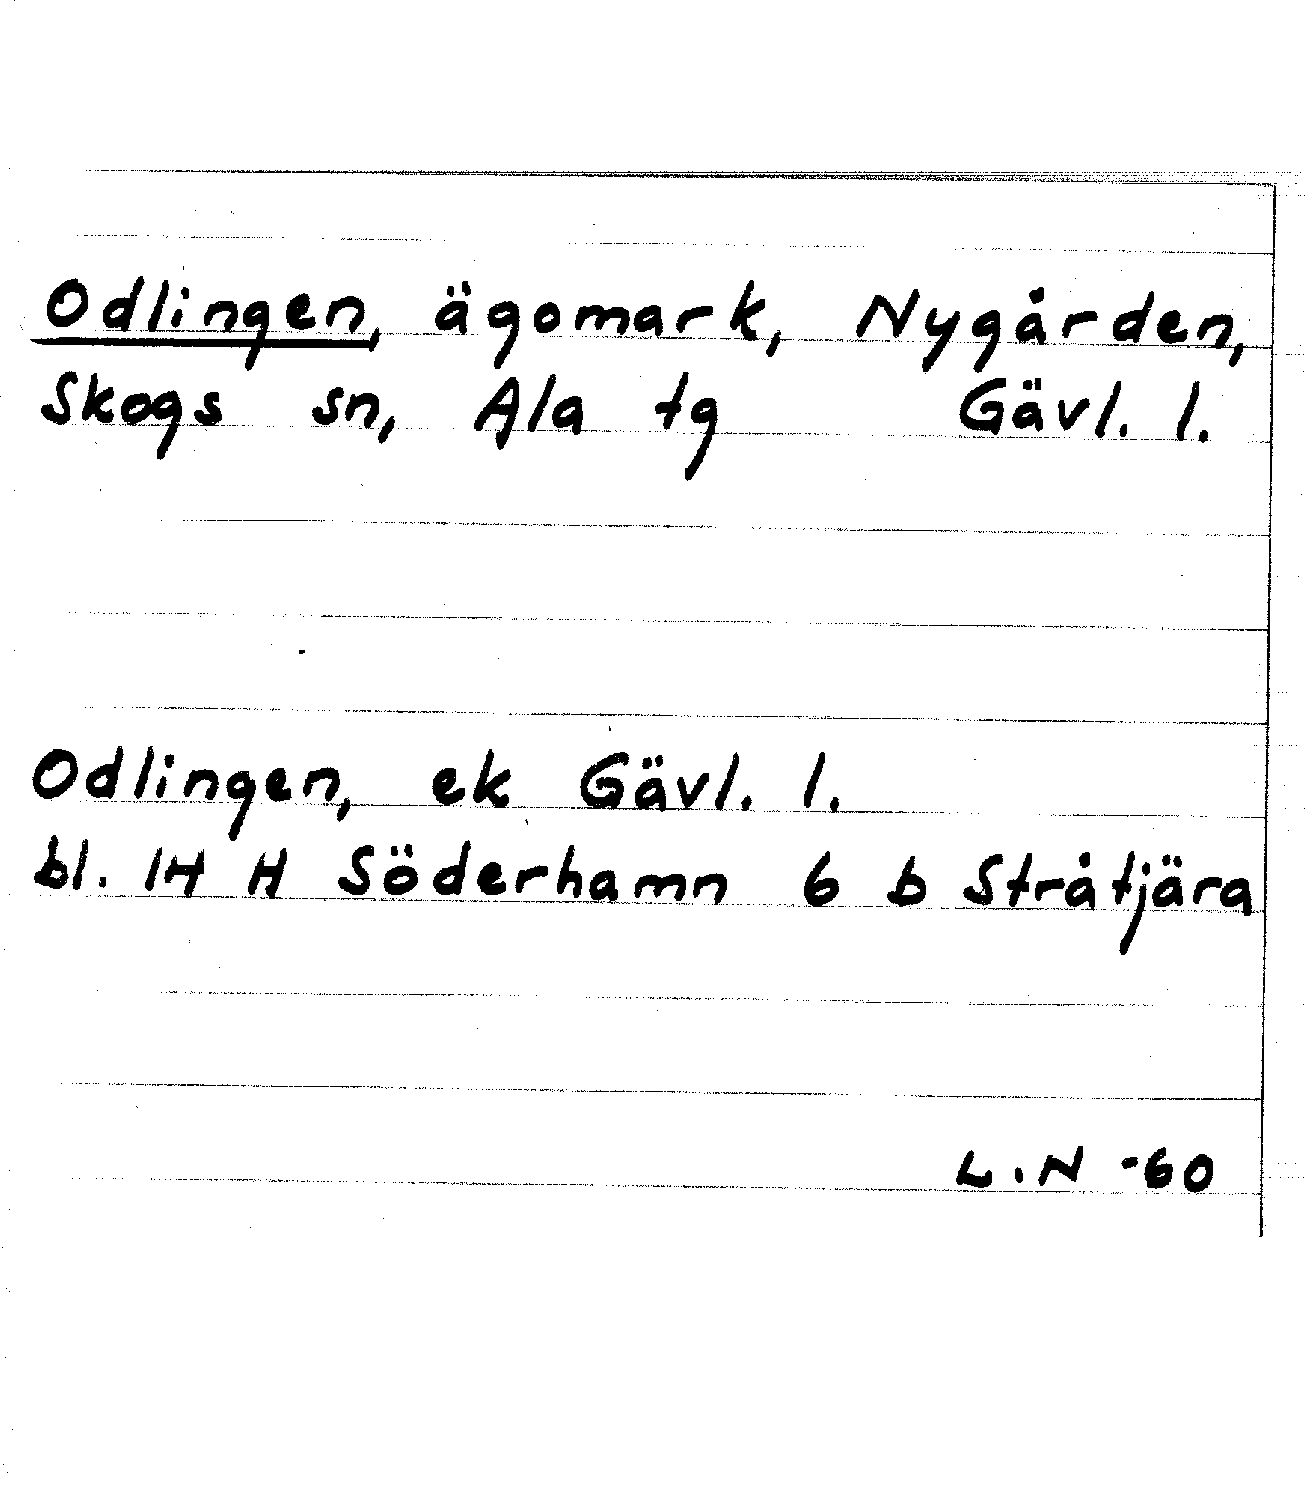 Odlingen, ägomark, Nygården,
Skogs sn, Ala tg Gävl. l.
Odlingen, ek Gävl. l.
bl. 14 H Söderhamn 6 b Stråtjära
L.N -60